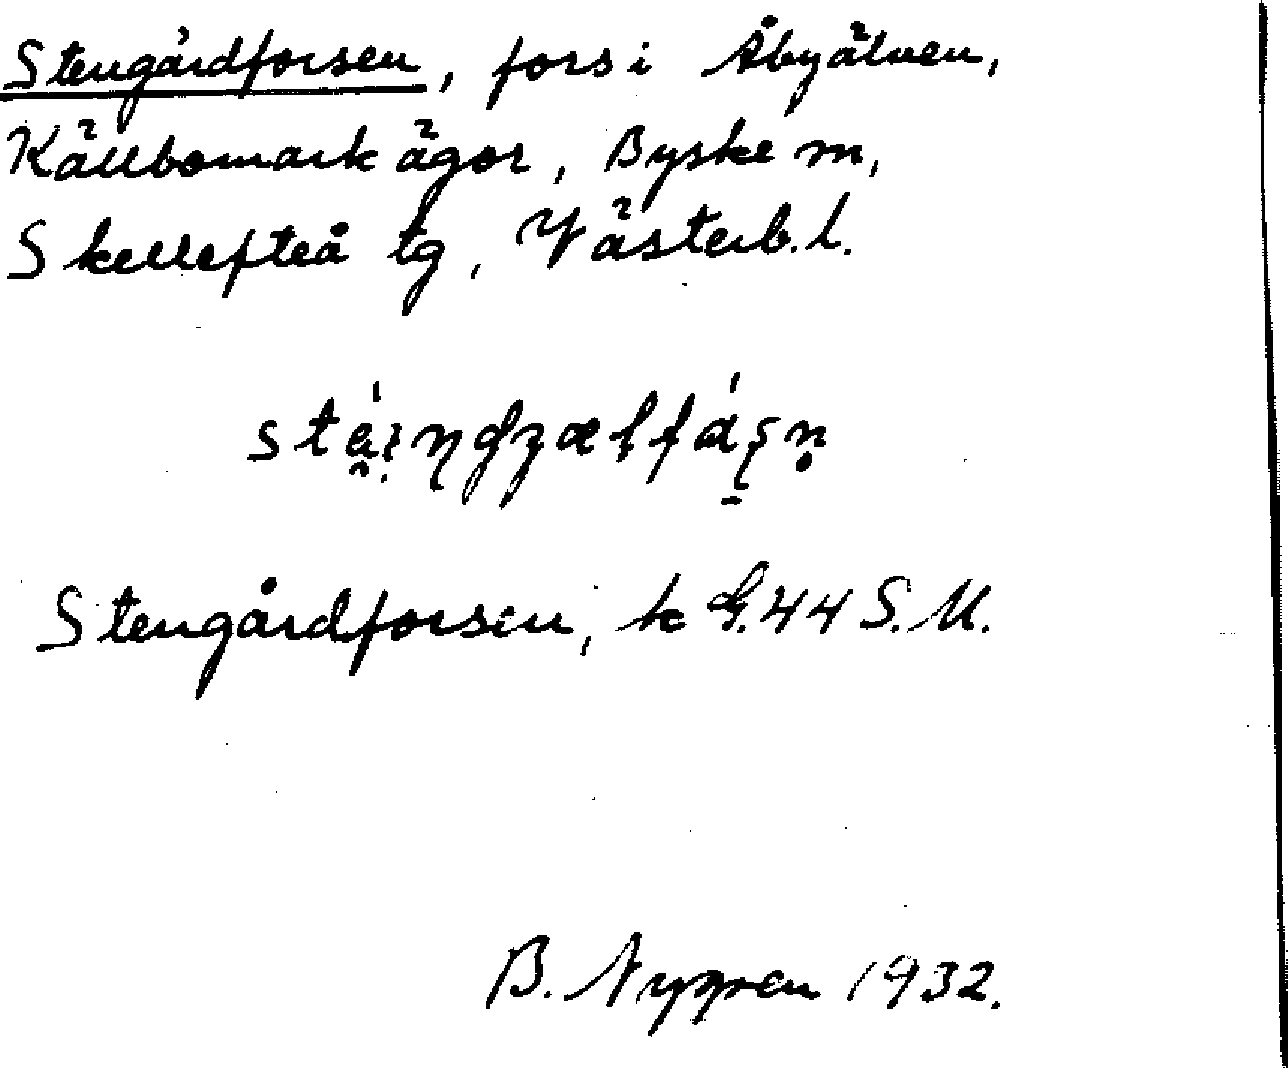 Stengårdforsen, fors i Åbyälven,
Källbomark ägor, Byske sn,
Skellefteå tg, Västerb. l.
Stengårdforsen, k G. 44 S. U.
B. Nygren 1932.